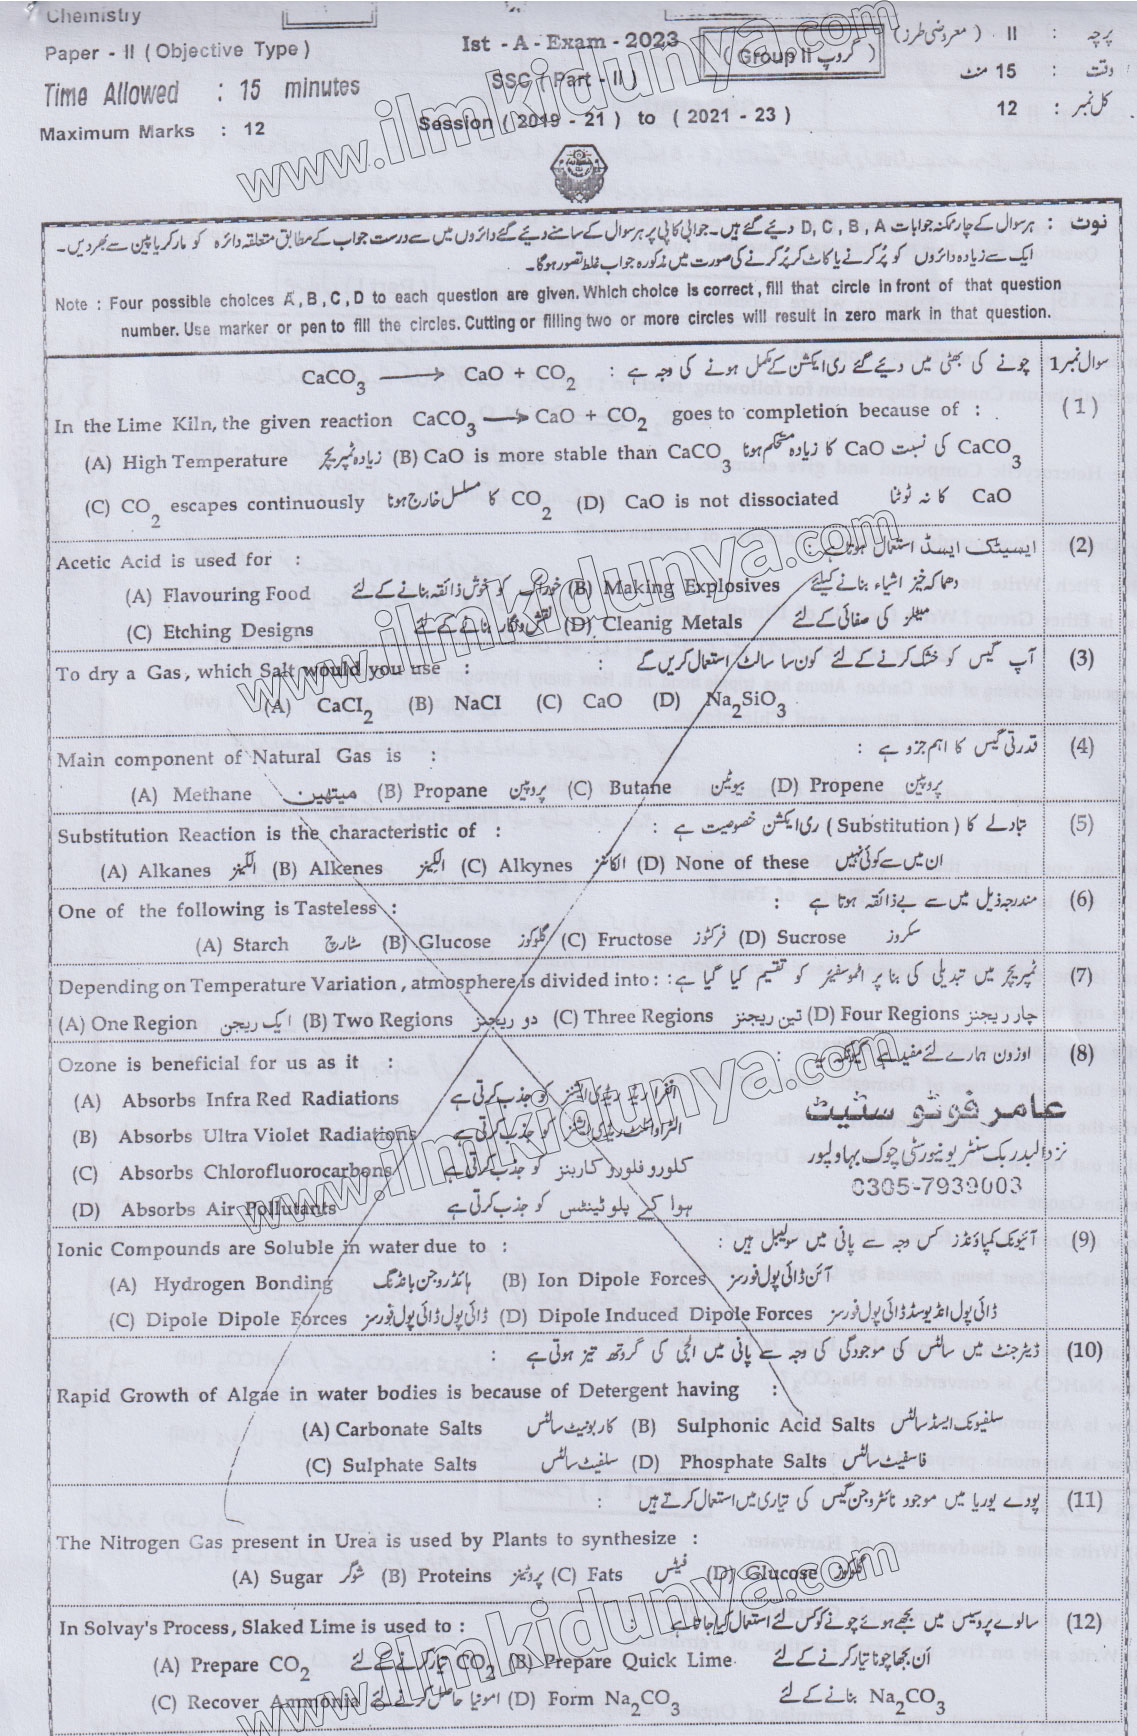 Chemistry
Paper - II ( Objective Type )
Time Allowed : 15 minutes
Maximum Marks : 12
Ist - A - Exam - 2023
SSC ( Part - II )
Session ( 2019 - 21 ) to ( 2021 - 23 )
( Group II گروپ )
پرچہ : II ( معروضی طرز )
وقت : 15 منٹ
کل نمبر : 12
نوٹ : ہر سوال کے چار ممکنہ جوابات D , C , B , A دیئے گئے ہیں۔ جوابی کاپی پر ہر سوال کے سامنے دیئے گئے دائروں میں سے درست جواب کے مطابق متعلقہ دائرہ کو مارکر یا پین سے بھر دیں۔
ایک سے زیادہ دائروں کو پُر کرنے یا کاٹ کر پُر کرنے کی صورت میں مذکورہ جواب غلط تصور ہوگا۔
Note : Four possible choices A , B , C , D to each question are given. Which choice is correct , fill that circle in front of that question
number. Use marker or pen to fill the circles. Cutting or filling two or more circles will result in zero mark in that question.
سوال نمبر 1 چونے کی بھٹی میں دیئے گئے ری ایکشن کے مکمل ہونے کی وجہ ہے : CaCO3 ⟶ CaO + CO2
(1) In the Lime Kiln, the given reaction CaCO3 ⟶ CaO + CO2 goes to completion because of :
(A) High Temperature زیادہ ٹمپریچر (B) CaO is more stable than CaCO3 CaCO3 کی نسبت CaO کا زیادہ مستحکم ہونا
(C) CO2 escapes continuously CO2 کا مسلسل خارج ہونا (D) CaO is not dissociated CaO کا نہ ٹوٹنا
(2) ایسیٹک ایسڈ استعمال ہوتا ہے :
Acetic Acid is used for :
(A) Flavouring Food خوراک کو خوش ذائقہ بنانے کے لئے (B) Making Explosives دھماکہ خیز اشیاء بنانے کیلئے
(C) Etching Designs نقش و نگار بنانے کے لئے (D) Cleanig Metals میٹلز کی صفائی کے لئے
(3) آپ گیس کو خشک کرنے کے لئے کون سا سالٹ استعمال کریں گے :
To dry a Gas, which Salt would you use :
(A) CaCl2 (B) NaCl (C) CaO (D) Na2SiO3
(4) قدرتی گیس کا اہم جزو ہے :
Main component of Natural Gas is :
(A) Methane میتھین (B) Propane پروپین (C) Butane بیوٹین (D) Propene پروپین
(5) تبادلے کا ( Substitution ) ری ایکشن خصوصیت ہے :
Substitution Reaction is the characteristic of :
(A) Alkanes الکینز (B) Alkenes الکینز (C) Alkynes الکائنز (D) None of these ان میں سے کوئی نہیں
(6) مندرجہ ذیل میں سے بے ذائقہ ہوتا ہے :
One of the following is Tasteless :
(A) Starch سٹارچ (B) Glucose گلوکوز (C) Fructose فرکٹوز (D) Sucrose سکروز
(7) ٹمپریچر میں تبدیلی کی بنا پر اٹموسفیئر کو تقسیم کیا گیا ہے :
Depending on Temperature Variation , atmosphere is divided into :
(A) One Region ایک ریجن (B) Two Regions دو ریجنز (C) Three Regions تین ریجنز (D) Four Regions چار ریجنز
(8) اوزون ہمارے لئے مفید ہے کیونکہ یہ :
Ozone is beneficial for us as it :
(A) Absorbs Infra Red Radiations انفراریڈ ریڈی ایشنز کو جذب کرتی ہے
(B) Absorbs Ultra Violet Radiations الٹراوائلٹ ریڈی ایشنز کو جذب کرتی ہے
(C) Absorbs Chlorofluorocarbons کلوروفلوروکاربنز کو جذب کرتی ہے
(D) Absorbs Air Pollutants ہوا کے پلوٹینٹس کو جذب کرتی ہے
عامر فوٹو سٹیٹ
چوک بہاولپور
0305-7939003
(9) آئیونک کمپاؤنڈز کس وجہ سے پانی میں سولیبل ہیں :
Ionic Compounds are Soluble in water due to :
(A) Hydrogen Bonding ہائڈروجن بانڈنگ (B) Ion Dipole Forces آئن ڈائی پول فورسز
(C) Dipole Dipole Forces ڈائی پول ڈائی پول فورسز (D) Dipole Induced Dipole Forces ڈائی پول انڈیوسڈ ڈائی پول فورسز
(10) ڈیٹرجنٹ میں سالٹس کی موجودگی کی وجہ سے پانی میں الجی کی گروتھ تیز ہوتی ہے :
Rapid Growth of Algae in water bodies is because of Detergent having :
(A) Carbonate Salts کاربونیٹ سالٹس (B) Sulphonic Acid Salts سلفیونک ایسڈ سالٹس
(C) Sulphate Salts سلفیٹ سالٹس (D) Phosphate Salts فاسفیٹ سالٹس
(11) پودے یوریا میں موجود نائٹروجن گیس کی تیاری میں استعمال کرتے ہیں :
The Nitrogen Gas present in Urea is used by Plants to synthesize :
(A) Sugar شوگر (B) Proteins پروٹینز (C) Fats فیٹس (D) Glucose گلوکوز
(12) سالوے پروسیس میں بجھے ہوئے چونے کو کس لئے استعمال کیا جاتا ہے :
In Solvay's Process, Slaked Lime is used to :
(A) Prepare CO2 CO2 تیار کرنے کے لئے (B) Prepare Quick Lime اَن بجھا چونا تیار کرنے کے لئے
(C) Recover Ammonia امونیا حاصل کرنے کے لئے (D) Form Na2CO3 Na2CO3 بنانے کے لئے
www.ilmkidunya.com
www.ilmkidunya.com
www.ilmkidunya.com
www.ilmkidunya.com